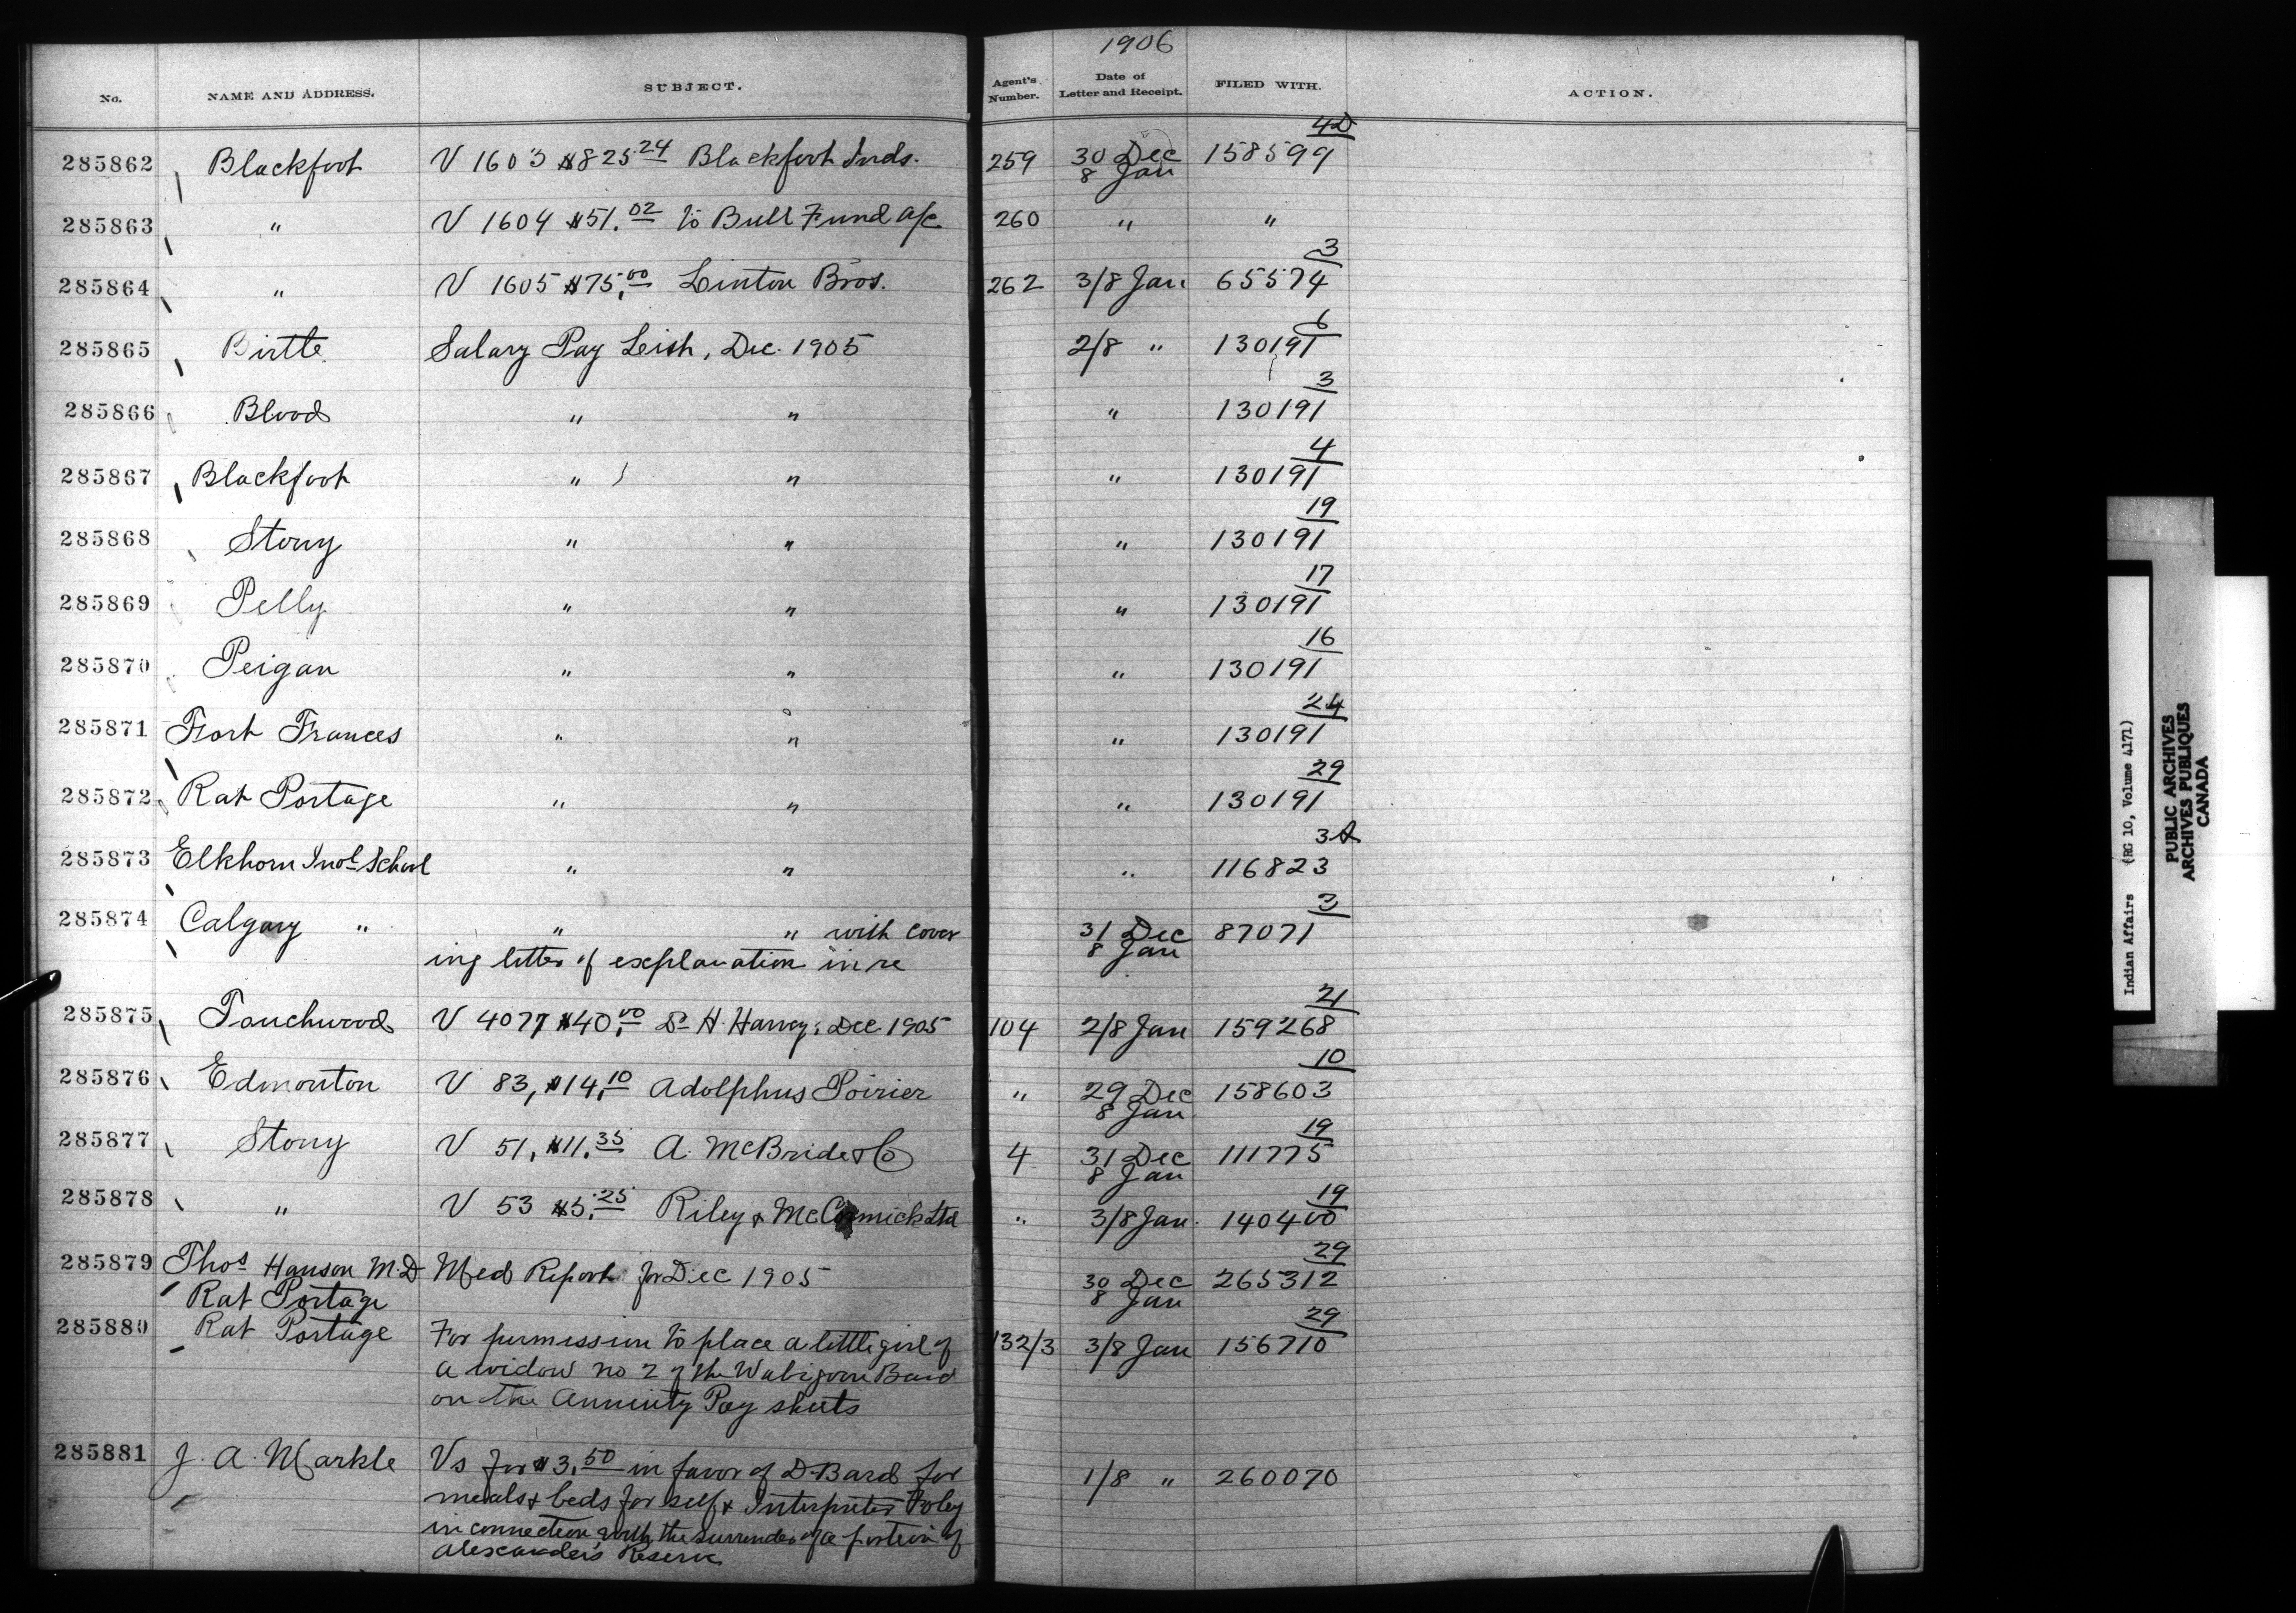 1906
No. NAME AND ADDRESS. SUBJECT. Agent's Number. Date of Letter and Receipt. FILED WITH. ACTION.
4D
285862 Blackfoot V 1603 $825.24 Blackfoot Inds. 259 30 Dec 158599
8 Jan
285863 " V 1604 $51.02 to Bull Fund a/c 260 " "
3
285864 " V 1605 $75.00 Linton Bros. 262 3/8 Jan. 65574
6
285865 Birtle Salary Pay Leish, Dec. 1905 2/8 " 130191
3
285866 Blood " " " 130191
4
285867 Blackfoot " " " 130191
19
285868 Stony " " " 130191
17
285869 Pelly " " " 130191
16
285870 Peigan " " " 130191
24
285871 Fort Frances " " " 130191
29
285872 Rat Portage " " " 130191
3A
285873 Elkhorn Indl School " " " 116823
3
285874 Calgary " " " with cover 31 Dec 87071
ing letter of explanation in re 8 Jan
21
285875 Touchwood V 4077 $40.00 Dr H. Harvey: Dec. 1905 104 2/8 Jan 159268
10
285876 Edmonton V 83, $14.10 Adolphus Poirier " 29 Dec 158603
8 Jan
19
285877 Stony V 51, $11.35 A. McBride & Co 4 31 Dec 111775
8 Jan
19
285878 " V 53 $5.25 Riley & McCormick Ltd " 3/8 Jan. 140400
29
285879 Thos Hanson M.D Med Report for Dec 1905 30 Dec 265312
Rat Portage 8 Jan
29
285880 Rat Portage For permission to place a little girl of 132/3 3/8 Jan 156710
a widow no 2 of the Wabigoon Band
on the Annuity Pay sheets
285881 J. A. Markle Vs for $3.50 in favor of D. Bard for 1/8 " 260070
meals & beds for self & Interpreter Foley
in connection with the surrender of a portion of
Alexander's Reserve
Indian Affairs (RG 10, Volume 4171)
PUBLIC ARCHIVES
ARCHIVES PUBLIQUES
CANADA